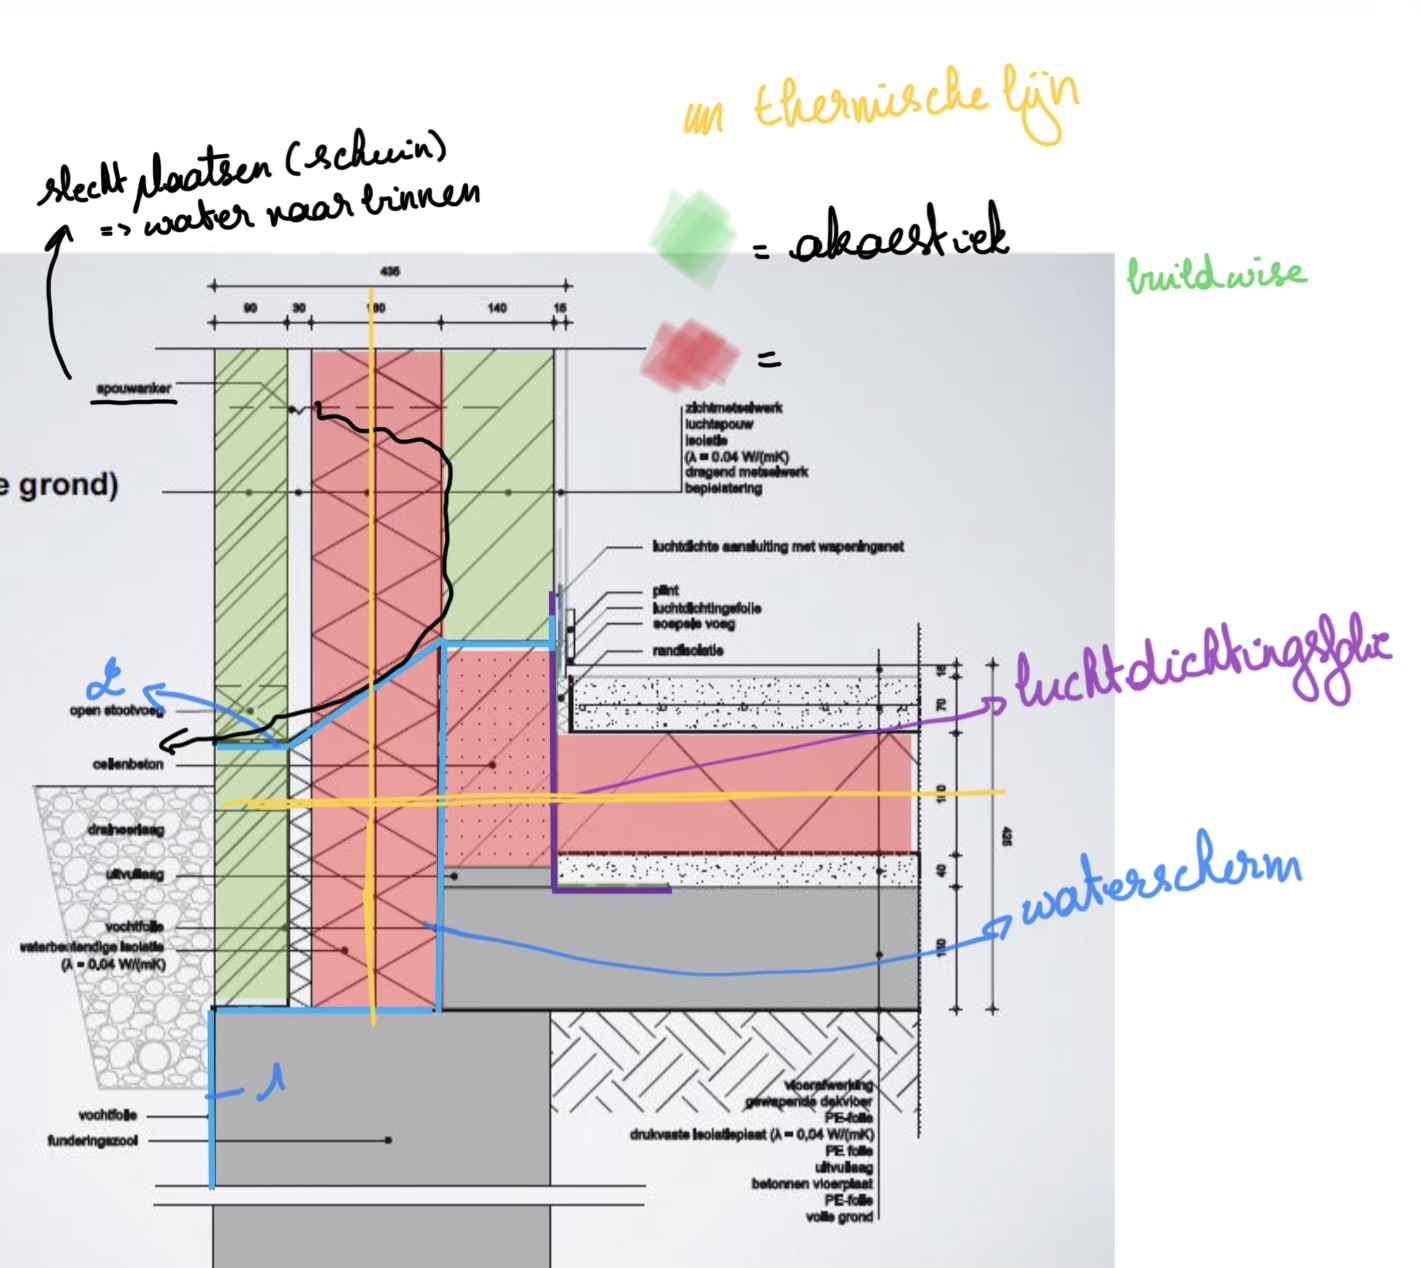 thermische lijn
slecht plaatsen (schuin)
=> water naar binnen
= akoestiek
buildwise
=
435
90
30
140
15
spouwanker
zichtmetselwerk
luchtspouw
isolatie
(λ = 0.04 W/(mK)
dragend metselwerk
bepleistering
e grond)
luchtdichte aansluiting met wapeningsnet
plint
luchtdichtingsfolie
soepele voeg
randisolatie
luchtdichtingsfolie
2
open stootvoeg
cellenbeton
15
70
425
40
draineerlaag
uitvullaag
vochtfolie
waterbestendige isolatie
(λ = 0,04 W/(mK)
waterscherm
1
vochtfolie
funderingszool
vloerafwerking
gewapende dekvloer
PE-folie
drukvaste isolatieplaat (λ = 0,04 W/(mK)
PE folie
uitvullaag
betonnen vloerplaat
PE-folie
volle grond